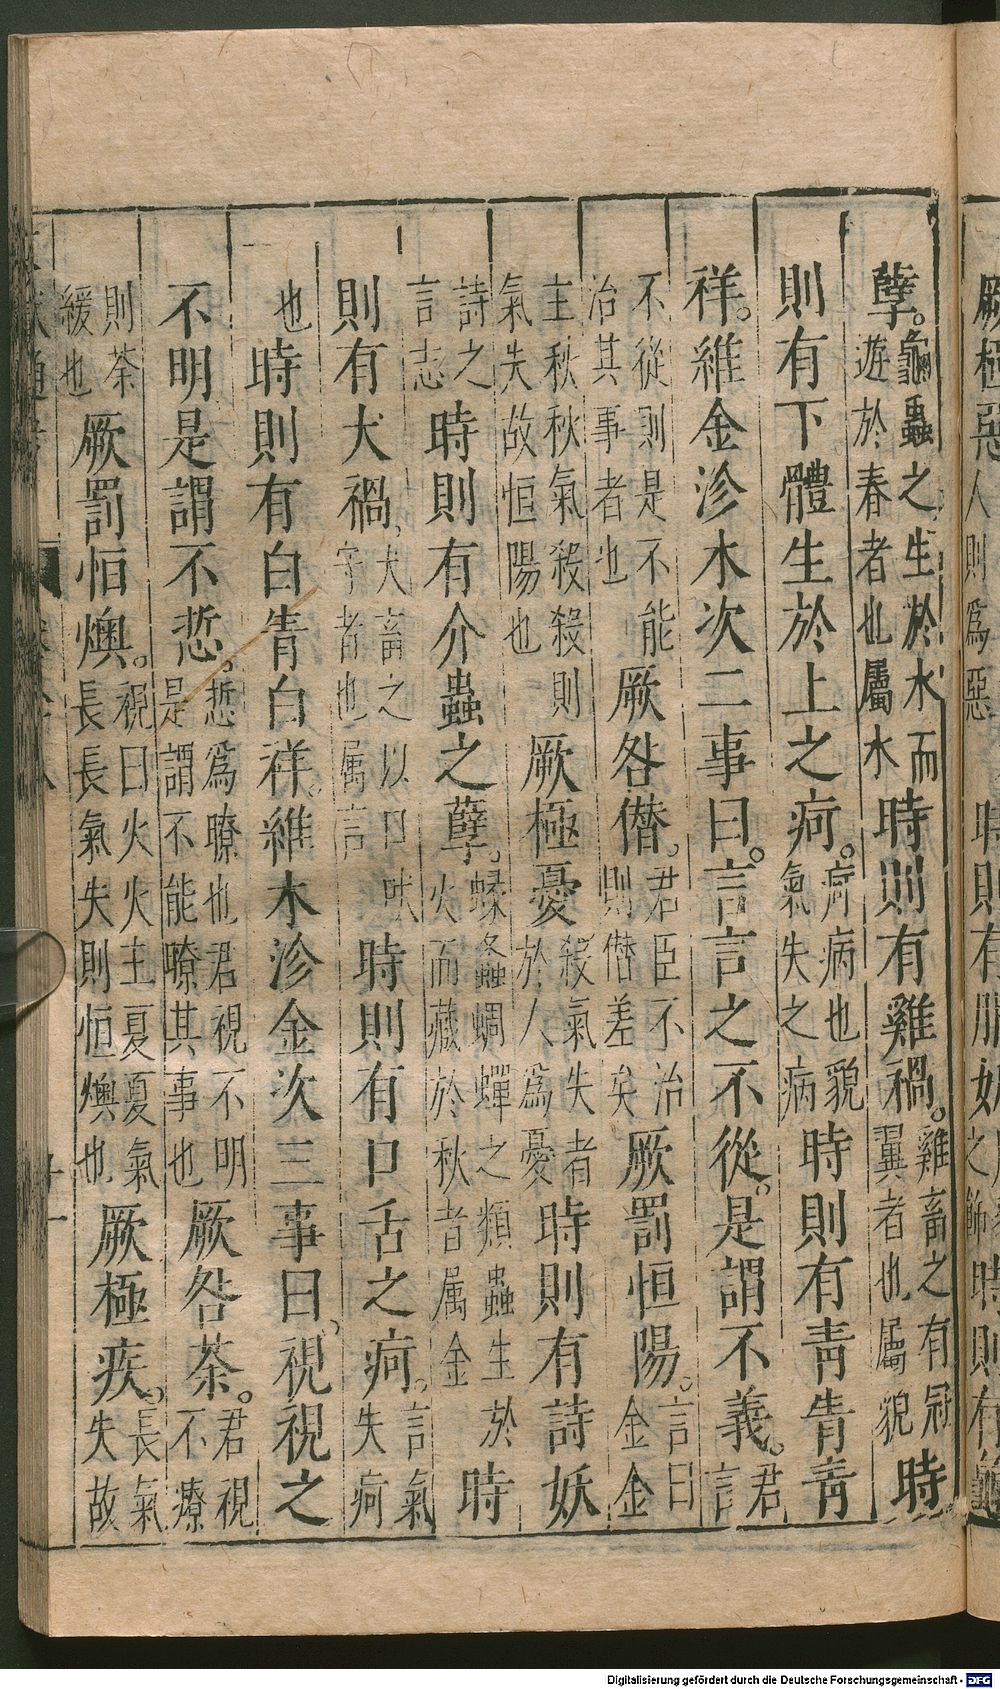 厥極惡人則為惡時則有服妖之飾時則有龜
孽。龜蟲之生於水而遊於春者也屬水時則有雞禍。雞畜之有冠翼者也屬貌時
則有下體生於上之痾。痾病也貌氣失之病時則有青眚青
祥。維金沴木次二事曰。言言之不從。是謂不義。君言
不從則是不能治其事者也厥咎僭。君臣不治則僭差矣厥罰恒陽。言曰金金
主秋秋氣殺殺則氣失故恒陽也厥極憂殺氣失者於人為憂時則有詩妖
詩之言志時則有介蟲之孽。蝚螽蜩蟬之類蟲生於火而藏於秋者属金時
則有犬禍，犬畜之以口吠守者也属言時則有口舌之痾。言氣失痾
也時則有白眚白祥。維木沴金次三事曰，視視之
不明是謂不悊，悊為瞭也君視不明是謂不能瞭其事也厥咎荼。君視不療
則荼緩也厥罰恒燠。視曰火火主夏夏氣長長氣失則恒燠也厥極疾。長氣失故
Digitalisierung gefördert durch die Deutsche Forschungsgemeinschaft - DFG